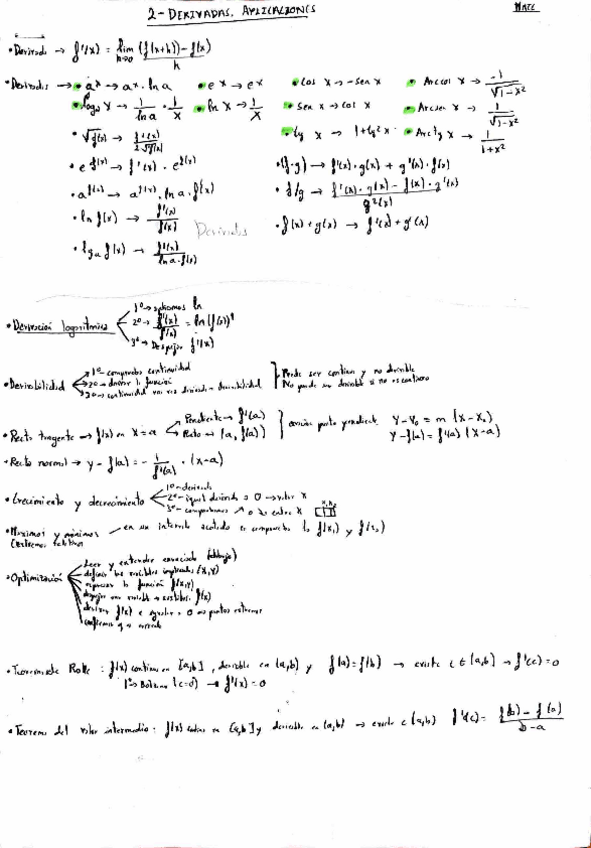 2-DERIVADAS. APLICACIONES
MATE
• Derivada → f'(x) = lim h→0 (f(x+h)) - f(x) / h
• Derivadas → • a^x → a^x · ln a • e^x → e^x • cos x → -sen x • Arccos x → -1/√1-x²
• log_a x → 1/ln a · 1/x • ln x → 1/x • sen x → cos x • Arcsen x → 1/√1-x²
• √f(x) → f'(x)/2√f(x) • tg x → 1+tg²x • Arctg x → 1/1+x²
• e^f(x) → f'(x) · e^f(x) • (f·g) → f'(x)·g(x) + g'(x)·f(x)
• a^f(x) → a^f(x) · ln a · f'(x) • f/g → f'(x)·g(x) - f(x)·g'(x) / g²(x)
• ln f(x) → f'(x)/f(x) Derivadas • f(x)+g(x) → f'(x)+g'(x)
• log_a f(x) → f'(x)/ln a·f(x)
• Derivación logarítmica
1º→ aplicamos ln
2º→ f'(x)/f(x) = ln(f(x))'
3º→ Despejar f'(x)
• Derivabilidad
1º- comprobar continuidad
2º→ derivar la función
Puede ser continua y no derivable
No puede ser derivable si no es continua
• Recta tangente → f(x) en x=a
Pendiente → f'(a)
Punto → (a, f(a))
ecuación punto pendiente
y-y₀ = m (x-x₀)
y-f(a) = f'(a) (x-a)
• Recta normal → y - f(a) = -1/f'(a) · (x-a)
• Crecimiento y decrecimiento
1º- derivada
2º- igual derivada a 0 → valor x
• Máximos y mínimos
en un intervalo acotado
f(x₁) y f(x₂)
• Optimización
Leer y entender enunciado (dibujo)
definir las variables implicadas (x,y)
expresar la función f(x,y)
despejar una variable → sustituir f(x)
derivar f(x) e igualar a 0 → puntos extremos
• Teorema de Rolle : f(x) continua en [a,b], derivable en (a,b) y f(a)=f(b) → existe c ∈ (a,b) → f'(c)=0
1º→ Bolzano (c=0) → f'(x)=0
• Teorema del valor intermedio: f(x) continua en [a,b] y derivable en (a,b) → existe c (a,b) f'(c) = f(b) - f(a) / b-a